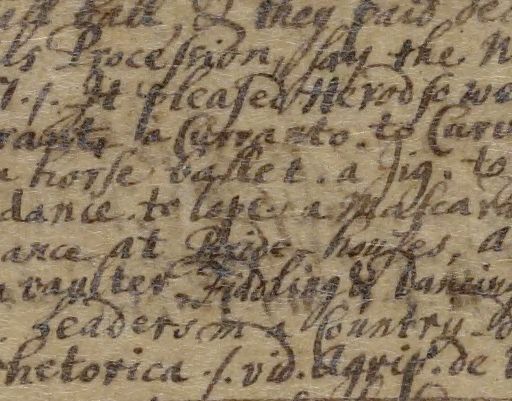 they paid
ls Procession, say the
It pleased Herod so we
a Curranto. to
a horse ballet. a Jig. to
dance. to lope. a mascara
ance at Bride houses, a
a vaulter, Fidling & Dancing
Leaders in a Country
rhetorica. /. vid. Agrip. de